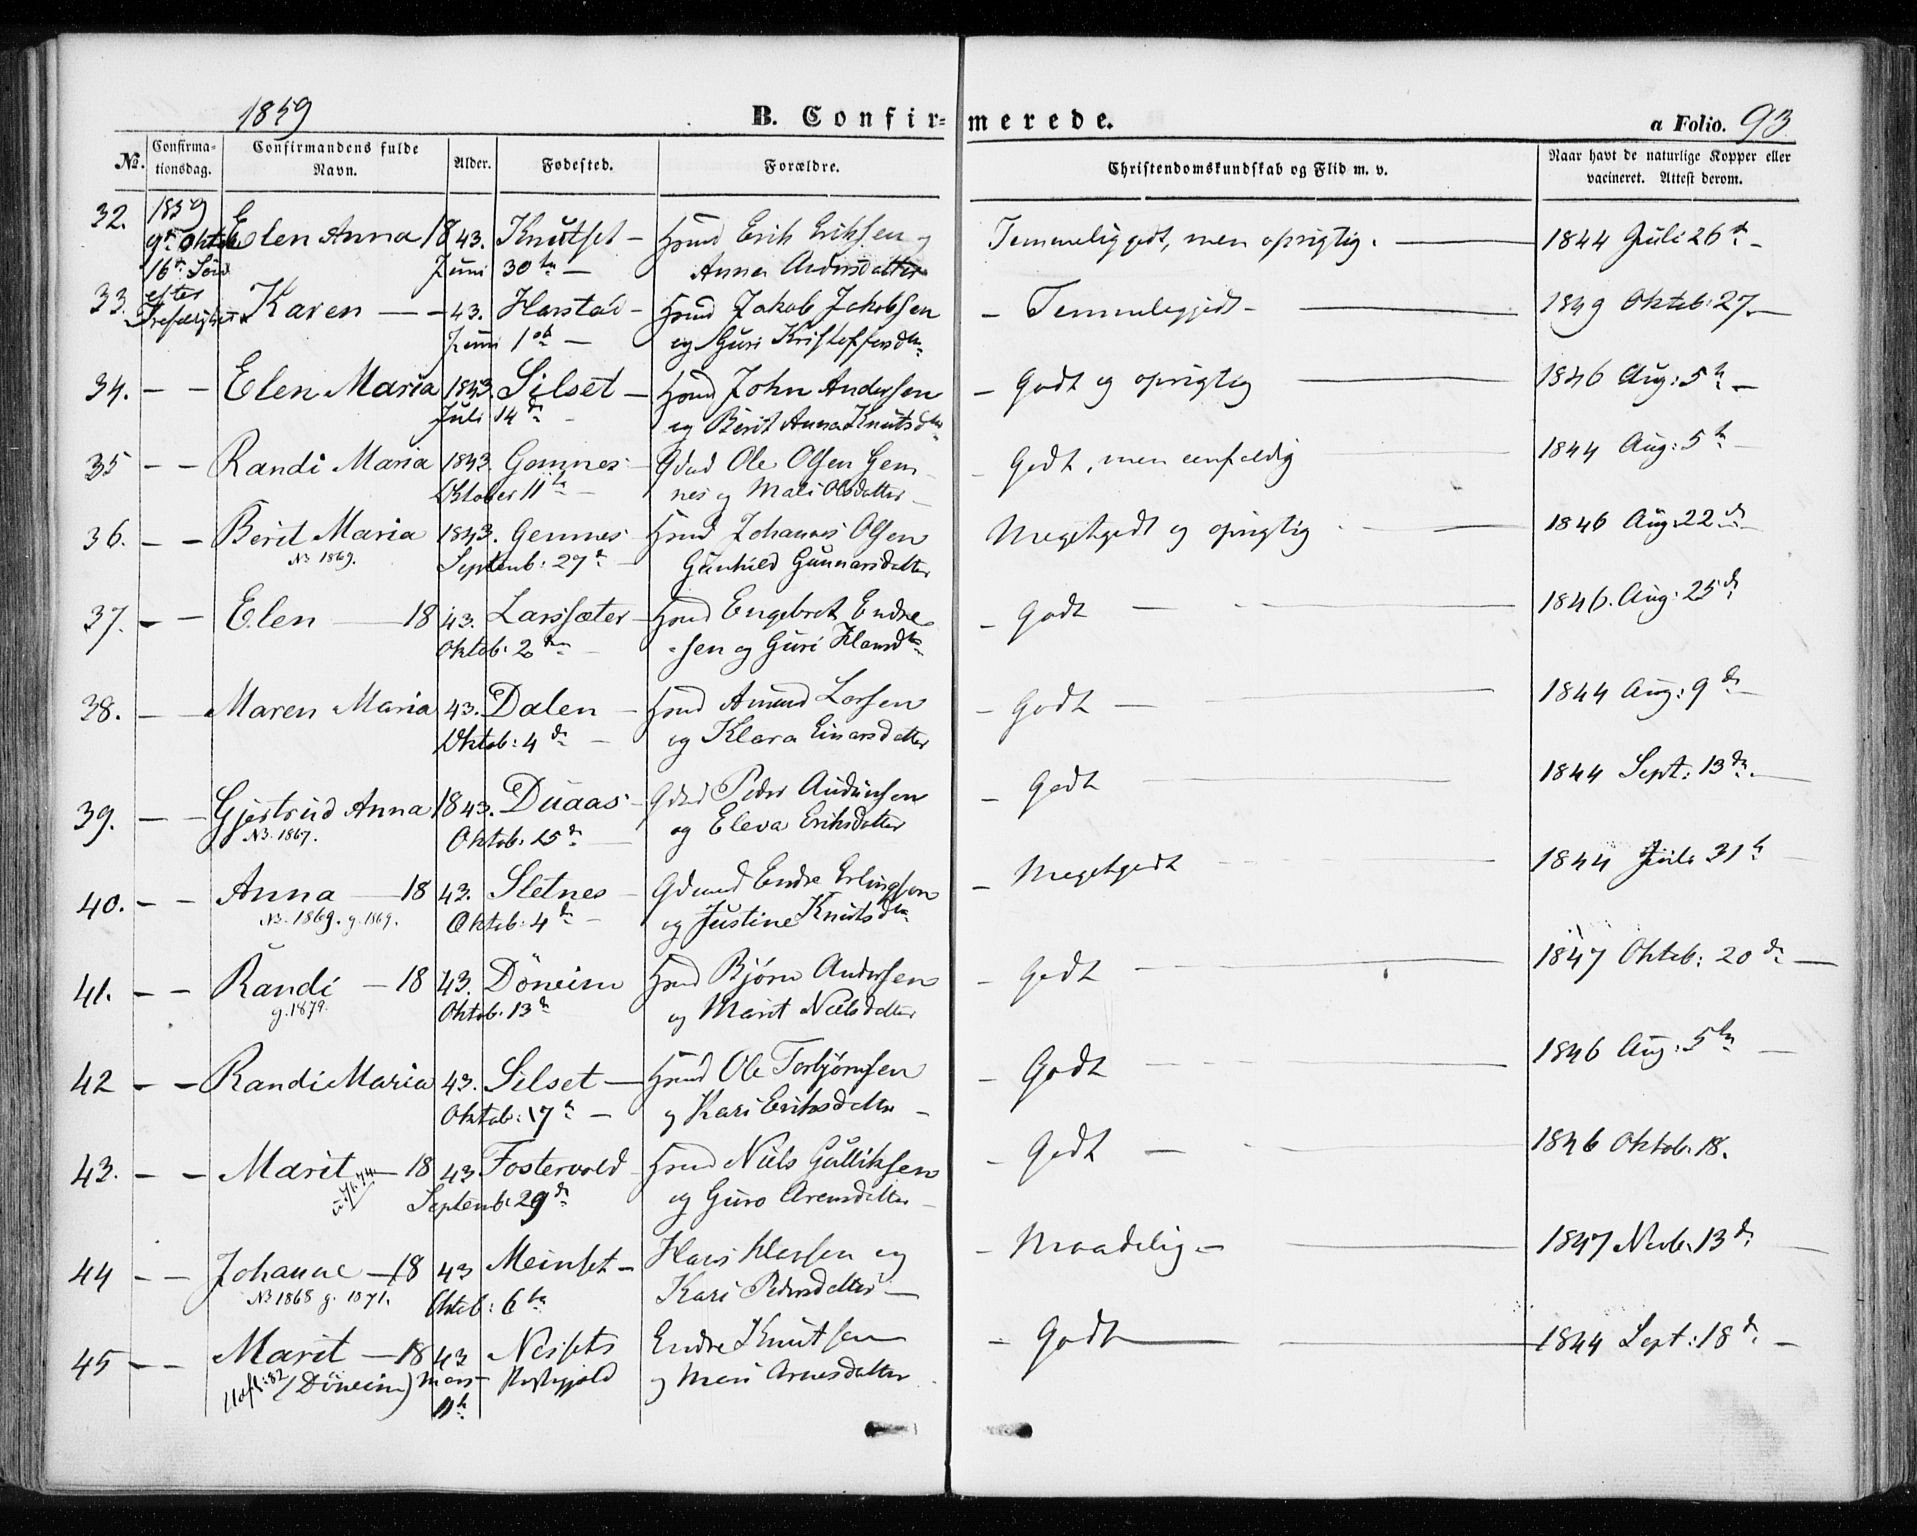 1859
B. Confir-
merede.
a Folio. 93
No.
Confirma-
tionsdag.
Confirmandens fulde
Navn.
Alder.
Fødested.
Forældre.
Christendomskundskab og Flid m. v.
Naar havt de naturlige Kopper eller
vacineret. Attest derom.
32. 1859 Elen Anna 1843. Knutset - Hmd Erik Eriksen og Temmeliggodt, men oprigtig. 1844 Juli 26de -
9de Oktob
16de Sønd Juni 30te - Anna Andersdatter
efter
33. Trefoldighed Karen - - 43. Harstad - Hmd Jakob Jakobsen - Temmeliggodt - 1849 Oktob: 27. -
Juni 1ste - og Guri Kristoffersdtr
34. - - Elen Maria 1843. Silset - Hmd John Andersen - Godt og oprigtig 1846 Aug: 5te -
Juli 14de - og Berit Anna Knutsdtr
35 - - Randi Maria 1843. Gemnes - Gdmd Ole Olsen Gem- - Godt, men eenfoldig 1844 Aug: 5te -
Oktober 11te - nes og Mali Olsdatter -
36. - - Berit Maria 1843. Gemnes - Hmd Johannes Olsen Megetgodt og oprigtig 1846 Aug: 22de -
N3 1869. Septemb: 27de - Gunhild Gunnarsdatter
37. - - Elen - 1843. Larssæter - Hmd Engebret Endre- - Godt - 1846. Aug: 25de
Oktob: 2den - sen og Guri
38. - - Maren Maria 43. Dalen - Hmd Amund Larsen - Godt - 1844 Aug: 9de -
Oktob: 4de - og Klara Einarsdatter
39. - - Gjertrud Anna 1843. Duaas - Gdmd Peder Audunsen - Godt 1844 Sept: 13de. -
N3. 1867. Oktob: 15de - og Eleva Eriksdatter
40. - - Anna - 1843. Sletnes - Gdmand Endre Erlingsen - Megetgodt 1844 Juli 31te -
N3. 1869. g. 1869. Oktob: 4de - og Justine Knutsdtr
41. - - Randi - 1843. Döneim Hmd Bjørn Andersen - Godt 1847 Oktob: 20de -
g. 1879. Oktob. 13de og Marit Nielsdatter
42 - - Randi Maria 43. Silset - Hmd Ole Torbjørnsen - Godt 1846 Aug: 5te -
Oktob: 17de - og Kari Eriksdatter -
43. - - Marit - 1843 Fostervold - Hmd Niels Gulliksen - Godt - 1846 Oktob. 18.
Septemb. 29de og Guro Arensdatter -
44 - - Johanne - 1843 Meinset - Hans og - Maadelig - 1847 Novb. 13de -
N3 1868 g. 1871. Oktob: 6te Kari Pedersdatter -
45 - - Marit - 1843 Neisets Endre Knutsen - Godt 1844 Sept: 18de -
Udfl: 82 (Döneim) Mars og Mari Arnesdatter
11te